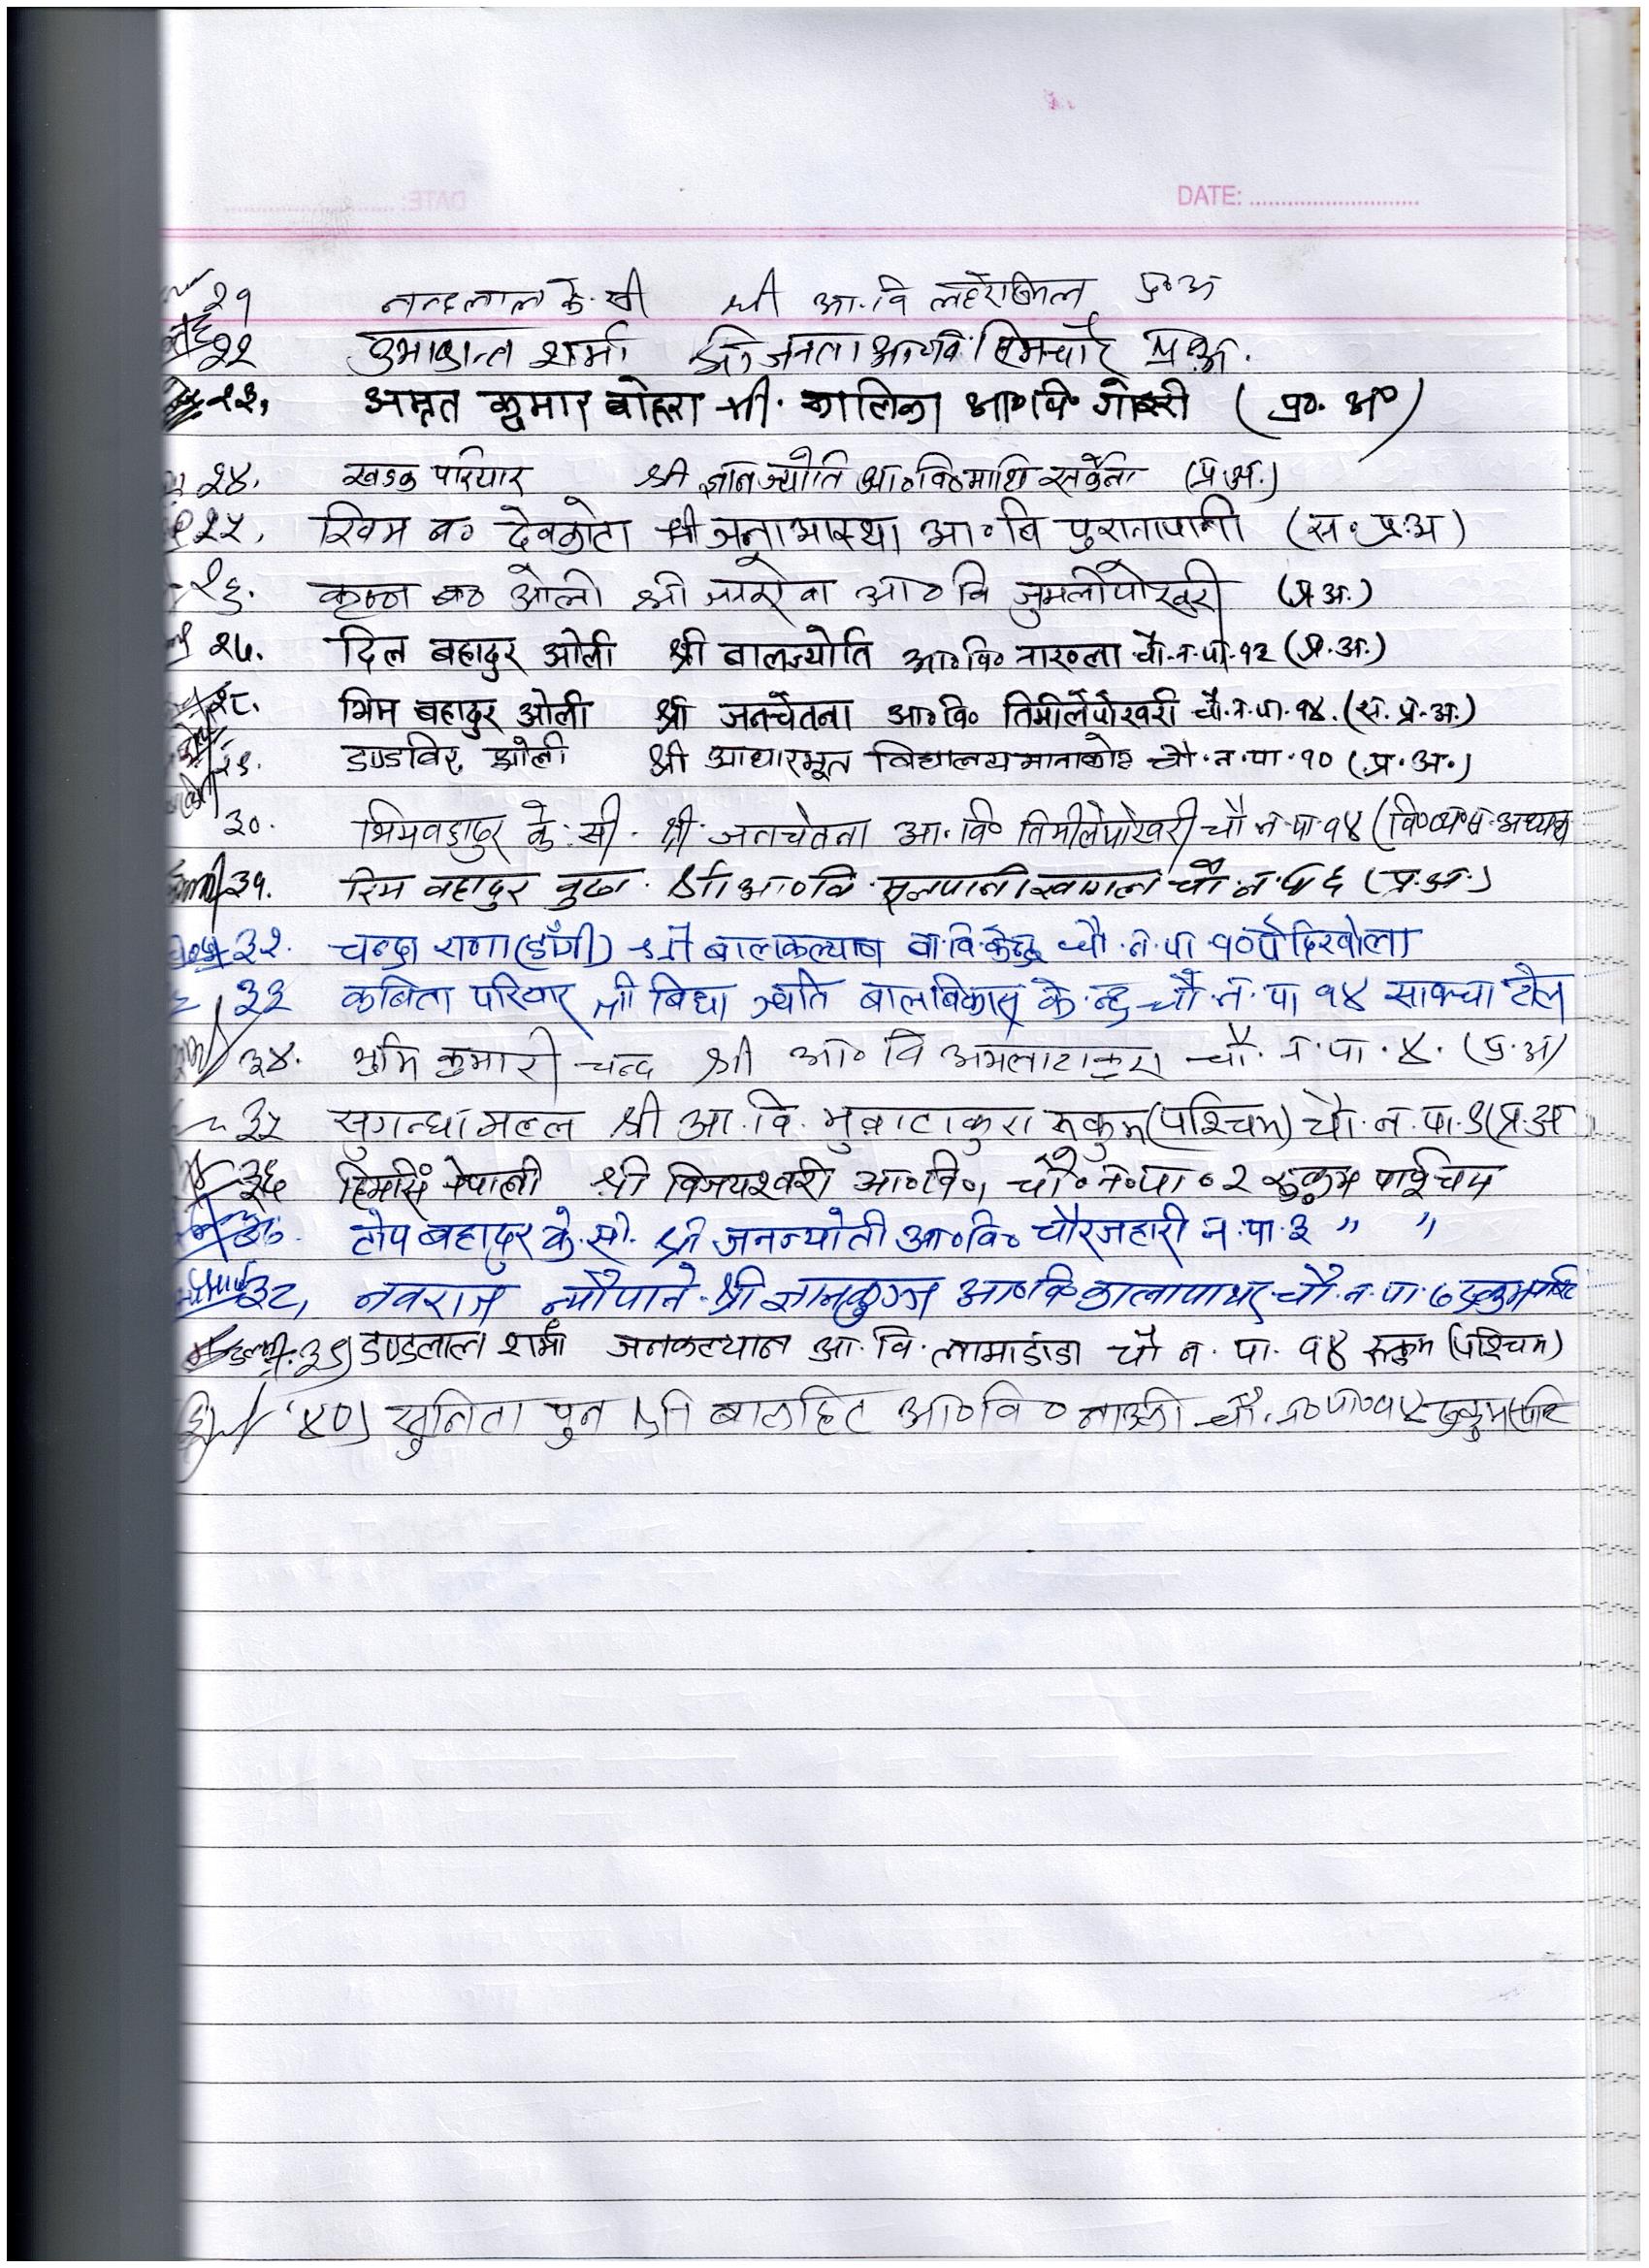 DATE: ............................
२१ नन्दलाल के.सी श्री आ.वि प्र.अ
२२ उमाकान्त शर्मा श्री जनता आ०वि सिमचौर प्र.अ.
२३. अमृत कुमार वोहरा श्री. कालिका आ०वि० (प्र०. अ०)
२४. खडक परियार श्री ज्ञानज्योति आ०वि० (प्र.अ.)
२५. खिम ब० देवकोटा श्री जनआस्था आ०बि पुरानापानी (स.प्र.अ)
२६. कृष्ण ब० ओली श्री आ० वि जुम्लीपोखरी (प्र.अ.)
२७. दिल बहादुर ओली श्री बालज्योति आ०वि० चौ.न.पा.१२ (प्र.अ.)
२८. भिम बहादुर ओली श्री जनचेतना आ०वि० तिमीलेपोखरी चौ.न.पा.१४. (स. प्र.अ.)
२९. डण्डविर ओली श्री आधारभूत विद्यालय मानाकोट चौ.न.पा.१० (प्र.अ.)
३०. भिमवहादुर के.सी. श्री जनचेतना आ.वि० तिमीलेपोखरी चौ न पा १४ (वि०व्य०स.अध्यक्ष
३१. रिम वहादुर वुढा. श्री आ०वि. चौ.न.पा ६ (प्र.अ.)
३२. चन्द्रा राना (डाँगी) श्री बालकल्याण बा.वि.केन्द्र चौ.न.पा १०
३३ कबिता परियार श्री बिद्या ज्योति बालबिकास केन्द्र चौ.न.पा १४ साक्चा टोल
३४. भुमि कुमारी चन्द श्री आ० वि अमलाटाकुरा चौ.न.पा.४. (प्र.अ)
३५ सुगन्धा मल्ल श्री आ.वि. टाकुरा रूकुम (पश्चिम) चौ.न.पा.९ (प्र.अ
३६ हिमसिं नेपाली श्री विजयश्वरी आ०वि०, चौ०न०पा०२ रुकुम पश्चिम
३७. टोप बहादुर के.सी. श्री जनज्योती आ०वि० चौरजहारी न.पा.३ " "
३८, नवराज न्यौपाने श्री ज्ञानकुञ्ज आ०वि कालापाथर चौ.न.पा.७
३९) डण्डलाल शर्मा जनकल्यान आ.वि. लामाडांडा चौ न.पा. १४ रूकुम (पश्चिम)
४०) सुनिता पुन श्री बालहित आ०वि०